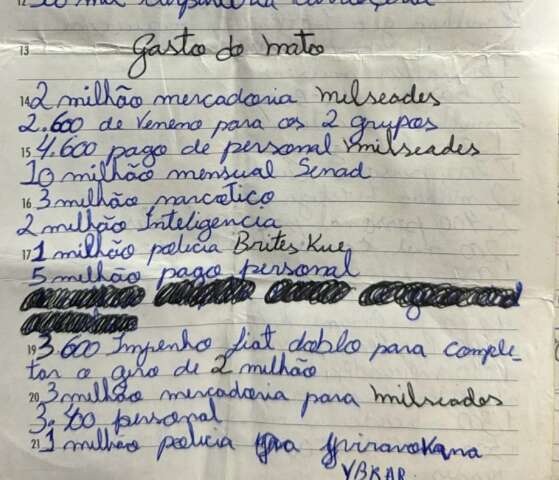 12
13 Gasto do mato
14 2 milhão mercadoria milseades
2.600 de veneno para os 2 grupos
15 4.600 pago de personal milseades
10 milhão mensual Senad
16 3 milhão narcotico
2 milhão Inteligencia
17 1 milhão policia Brites Kue
5 milhão pago personal
19 3.600 Impenho fiat doblo para comple-
tar o giro de 2 milhão
20 3 milhão mercadoria para milseades
3.400 personal
21 1 milhão policia
YBKAR.